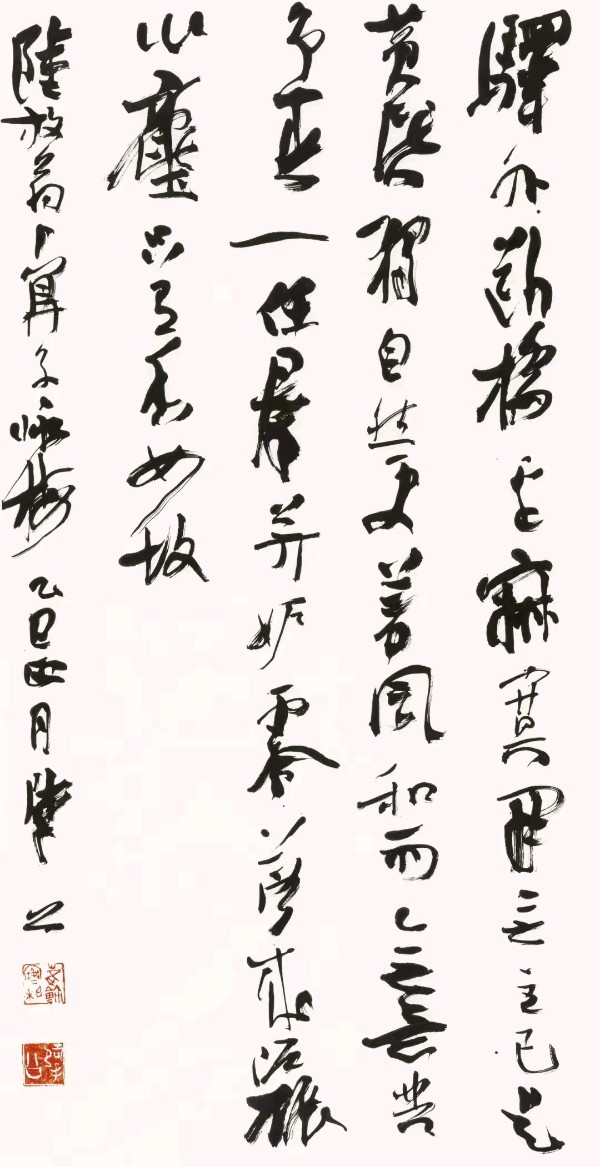 驛外斷橋邊寂寞開無主已是
黃昏獨自愁更著風和雨無意苦
爭春一任羣芳妬零落成泥碾
作塵只有香如故
陸放翁卜算子咏梅 乙巳四月